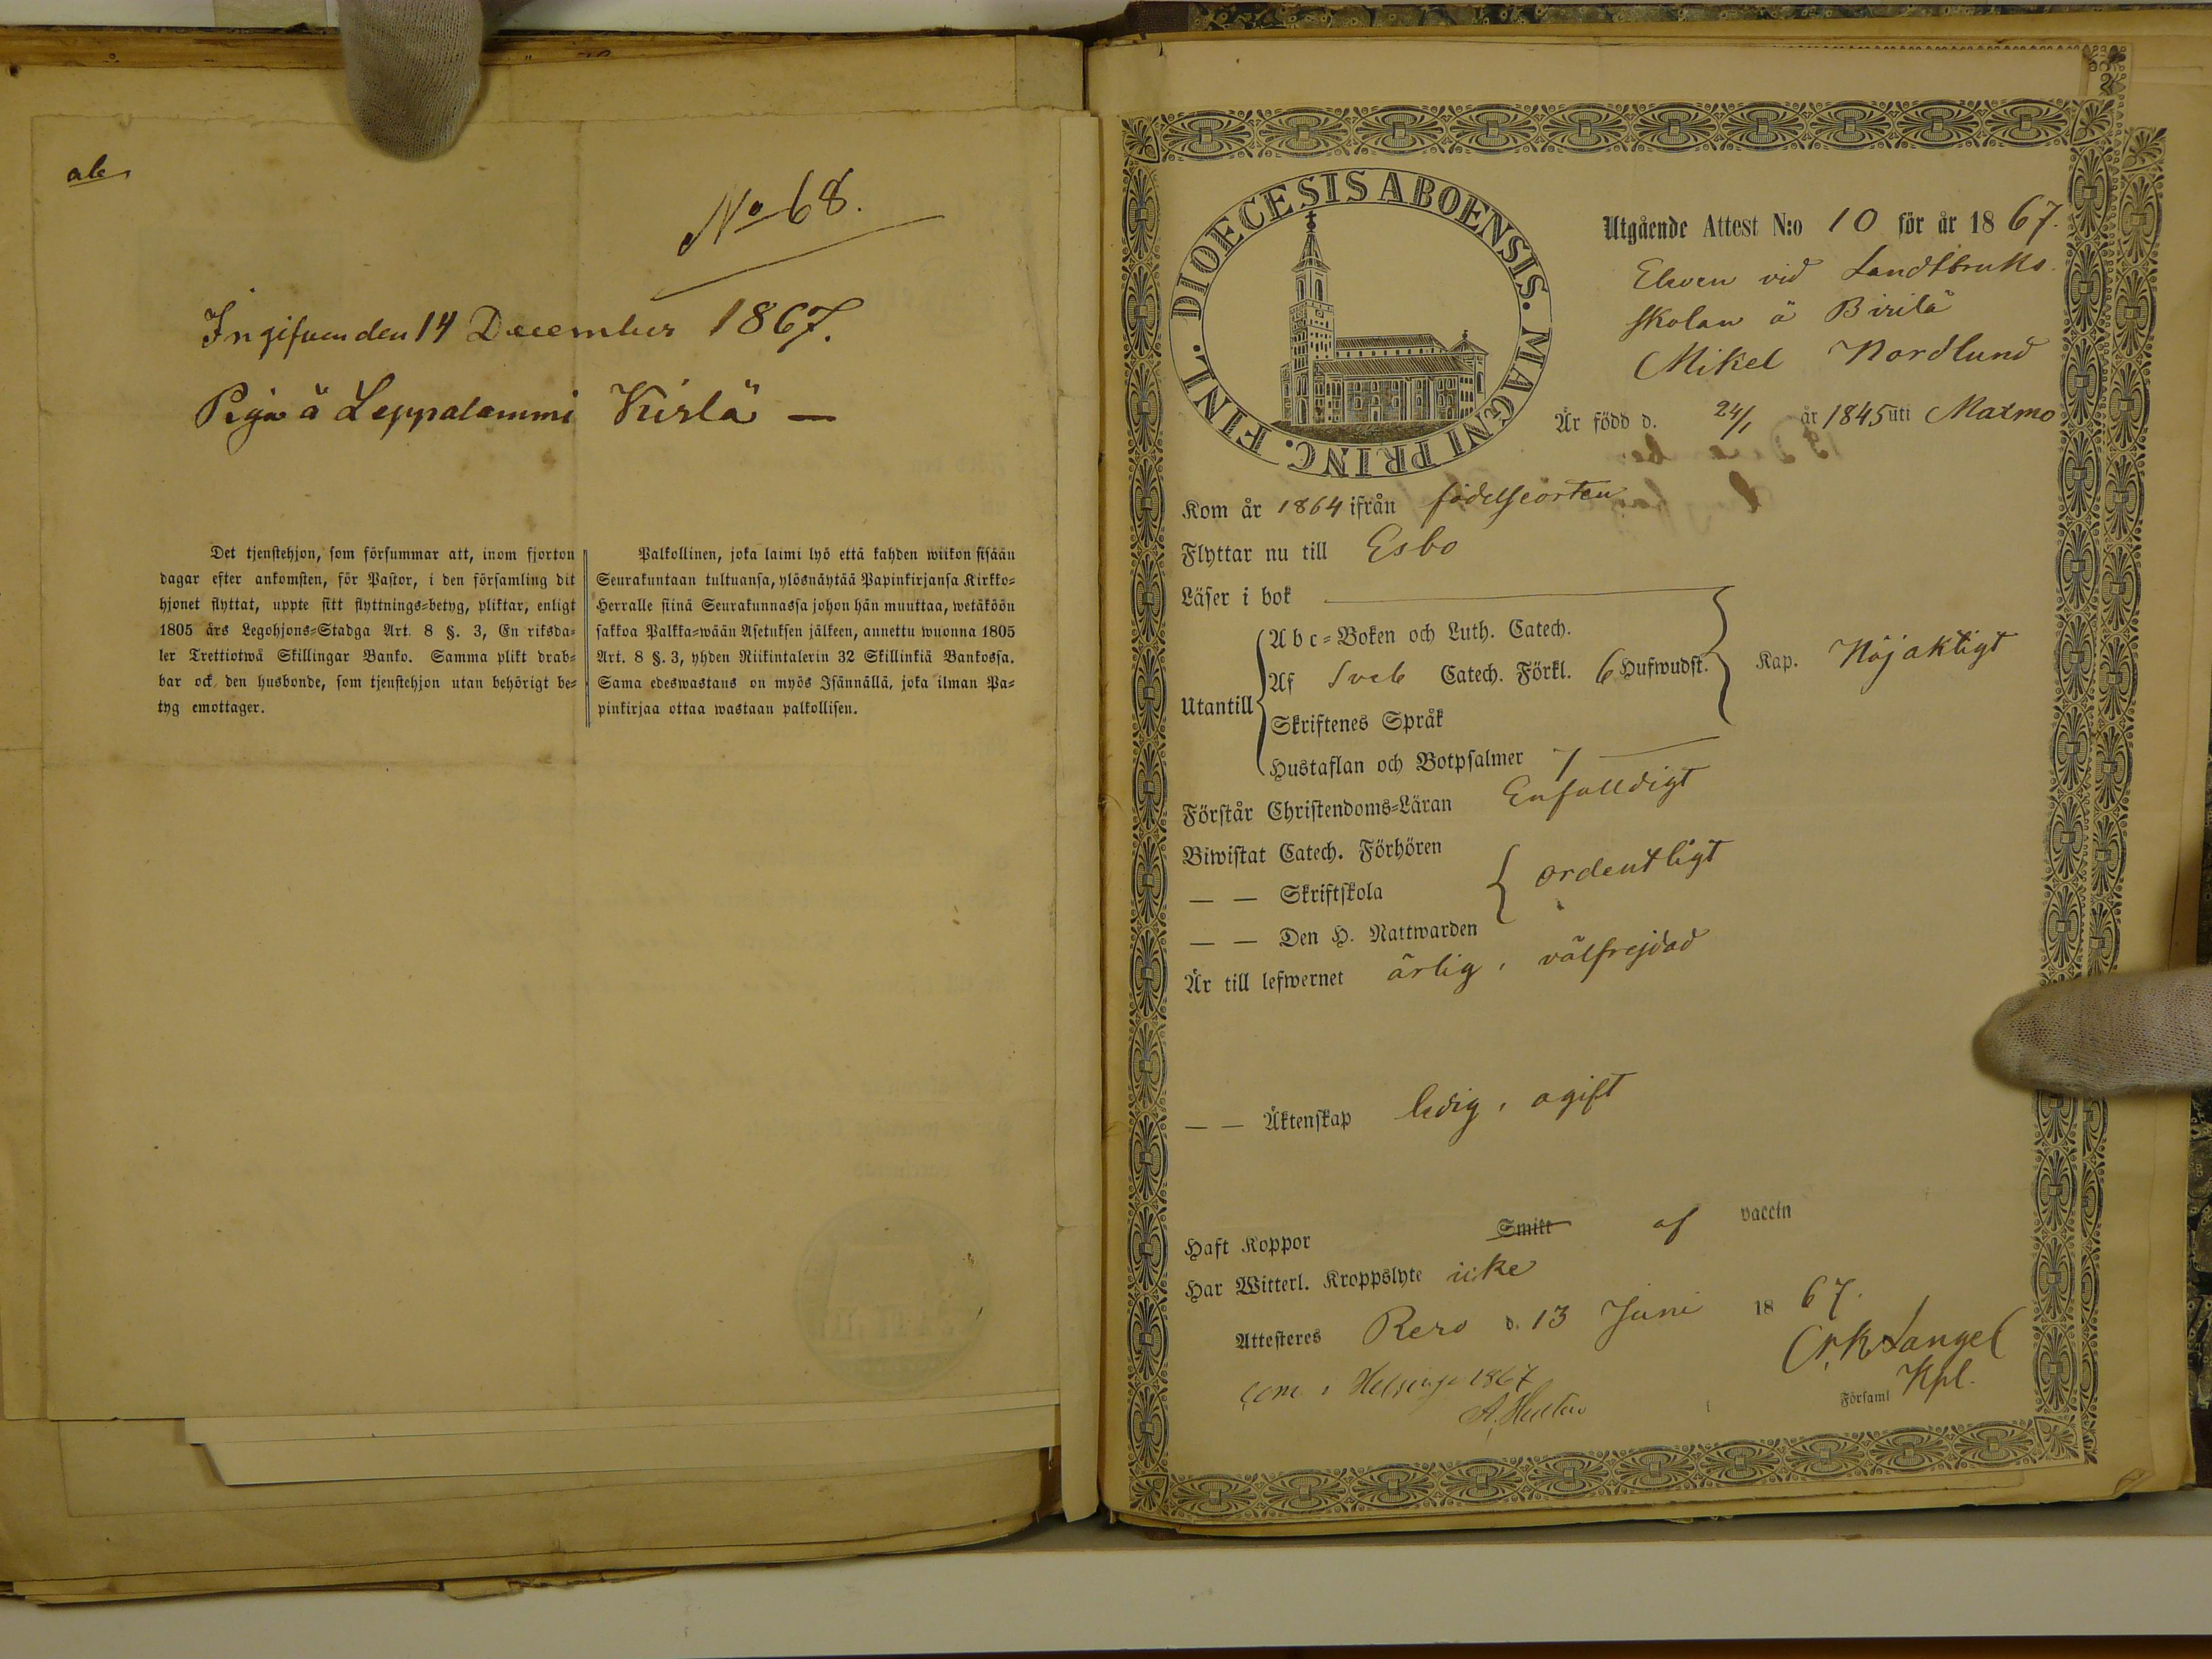 ale
No 68.
Ingifven den 14 December 1867.
Piga å Leppalammi Kirlä —
Det tjenstehjon, som försummar att, inom fjorton
dagar efter ankomsten, för Pastor, i den församling dit
hjonet flyttat, uppte sitt flyttnings=betyg, pliktar, enligt
1805 års Legohjons=Stadga Art. 8 §. 3, En riksda=
ler Trettiotwå Skillingar Banko. Samma plikt drab=
bar ock den husbonde, som tjenstehjon utan behörigt be=
tyg emottager.
Palkollinen, joka laimi lyö että kahden wiikon sisään
Seurakuntaan tultuansa, ylösnäytää Papinkirjansa Kirkko=
Herralle siinä Seurakunnassa johon hän muuttaa, wetäköön
sakkoa Palkka=wään Asetuksen jälkeen, annettu wuonna 1805
Art. 8 §. 3, yhden Riikintalerin 32 Skillinkiä Bankossa.
Sama edeswastaus on myös Isännällä, joka ilman Pa=
pinkirjaa ottaa wastaan palkollisen.
DIOECESIS ABOENSIS. MAGNI PRINC. FINL.
Utgående Attest N:o 10 för år 1867.
Eleven vid Landtbruks
skolan å Birilä
Mikel Nordlund
Är född d. 24/1 år 1845 uti Maxmo
Kom år 1864 ifrån födelseorten
Flyttar nu till Esbo
Läser i bok
Abc=Boken och Luth. Catech.
Af Sveb Catech. Förkl. 6 Hufwudst.
Kap. Nöjaktigt
Utantill
Skriftenes Språk
Hustaflan och Botpsalmer 7
Förstår Christendoms=Läran Enfalldigt
Biwistat Catech. Förhören
— — Skriftskola ordentligt
— — Den H. Nattwarden
Är till lefwernet ärlig, välfrejdad
— — Äktenskap ledig, ogift
Haft Koppor Smitt af vaccin
Har Witterl. Kroppslyte icke
Attesteres Rero d. 13 Juni 1867.
Langel
Kpl.
Församl
i Helsinge 1867
A.